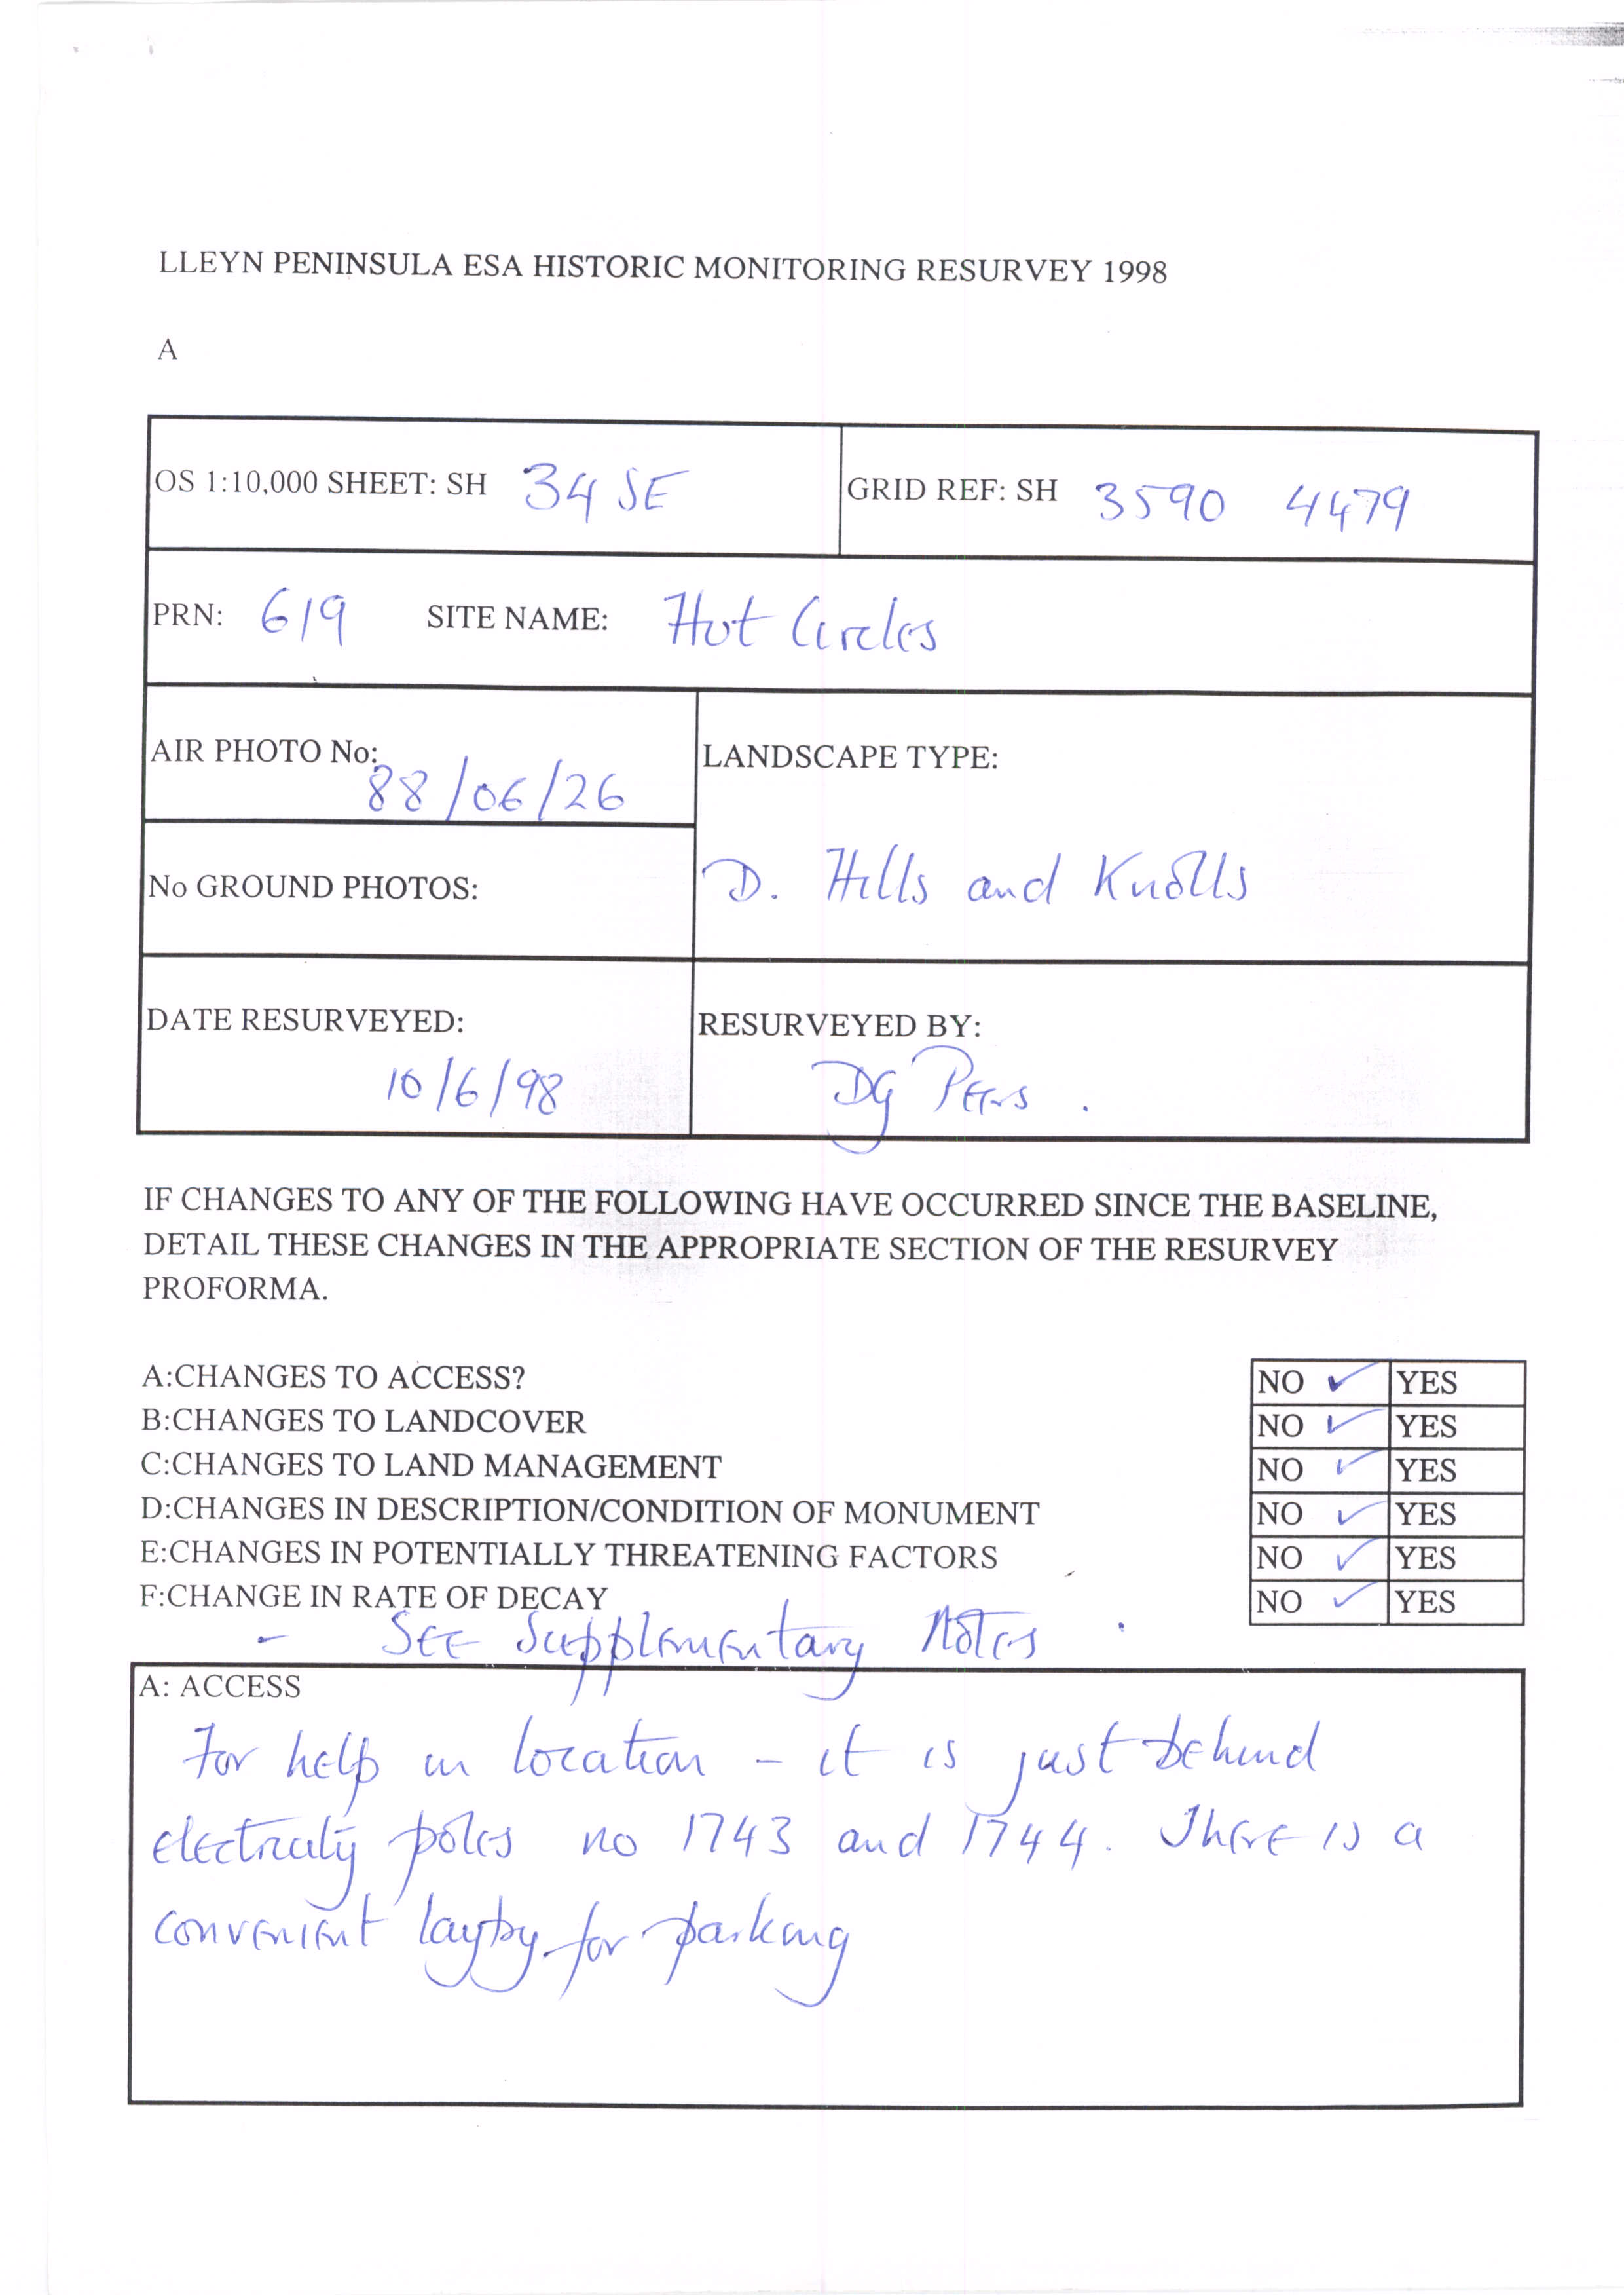 LLEYN PENINSULA ESA HISTORIC MONITORING RESURVEY 1998
A
OS 1:10,000 SHEET: SH 34 SE
GRID REF: SH 3590 4479
PRN: 619 SITE NAME: Hut Circles
AIR PHOTO No: 88/06/26
LANDSCAPE TYPE:
D. Hills and Knolls
No GROUND PHOTOS:
DATE RESURVEYED:
10/6/98
RESURVEYED BY:
DG Peers.
IF CHANGES TO ANY OF THE FOLLOWING HAVE OCCURRED SINCE THE BASELINE,
DETAIL THESE CHANGES IN THE APPROPRIATE SECTION OF THE RESURVEY
PROFORMA.
A:CHANGES TO ACCESS? NO ✓ YES
B:CHANGES TO LANDCOVER NO ✓ YES
C:CHANGES TO LAND MANAGEMENT NO ✓ YES
D:CHANGES IN DESCRIPTION/CONDITION OF MONUMENT NO ✓ YES
E:CHANGES IN POTENTIALLY THREATENING FACTORS NO ✓ YES
F:CHANGE IN RATE OF DECAY NO ✓ YES
- See Supplementary Notes.
A: ACCESS
For help in location - it is just behind
electricity poles no 1743 and 1744. There is a
convenient layby for parking